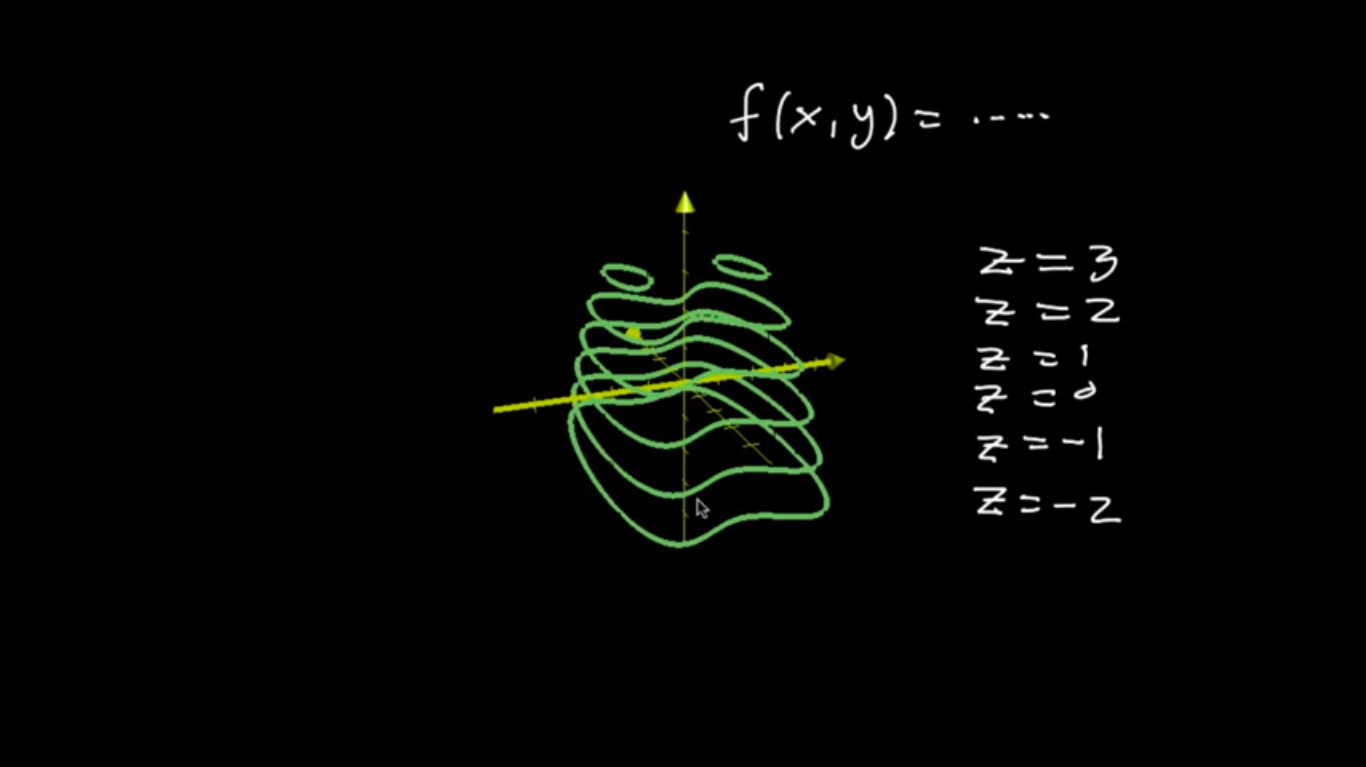 f(x,y) = .....
z = 3
z = 2
z = 1
z = 0
z = -1
z = -2